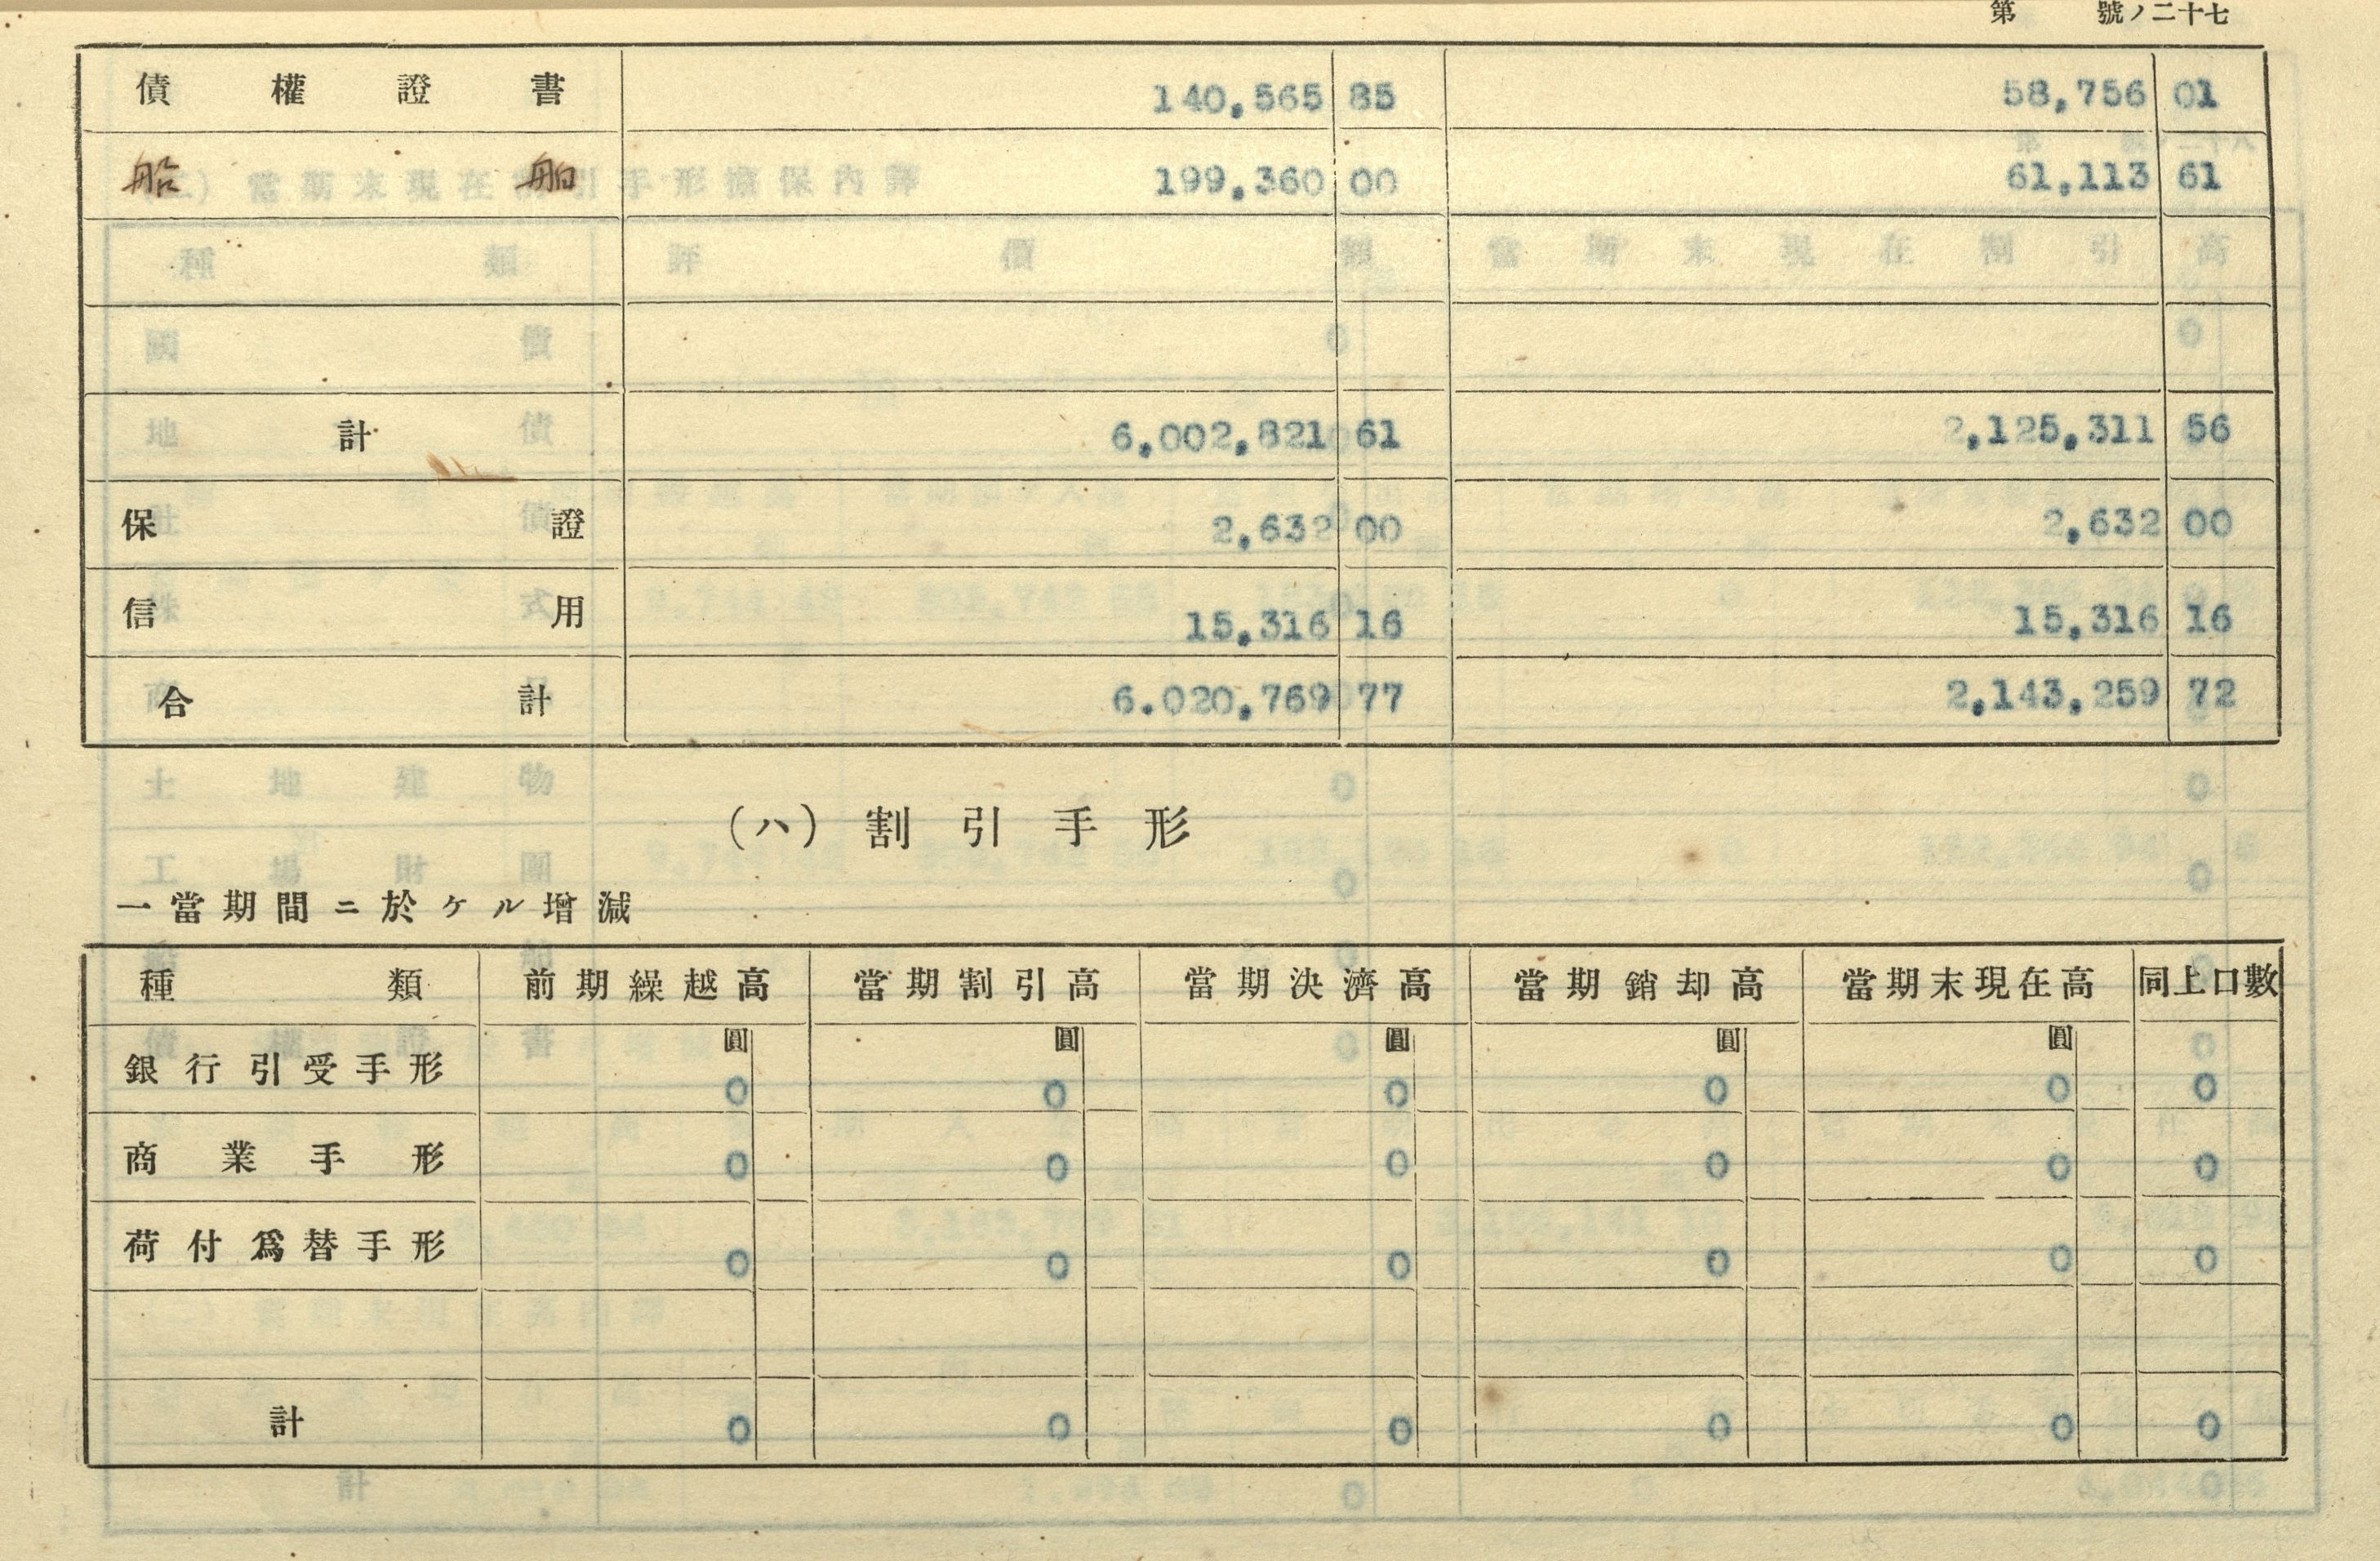 第 號ノ二十七
債權證書 140,565 85 58,756 01
船舶 199,360 00 61,113 61
計 6,002,821 61 2,125,311 56
保證 2,632 00 2,632 00
信用 15,316 16 15,316 16
合計 6.020,769 77 2,143,259 72
(ハ) 割引手形
一當期間ニ於ケル增減
種類 前期繰越高 當期割引高 當期決濟高 當期銷却高 當期末現在高 同上口數
圓 圓 圓 圓 圓
銀行引受手形 0 0 0 0 0 0
商業手形 0 0 0 0 0 0
荷付爲替手形 0 0 0 0 0 0
計 0 0 0 0 0 0